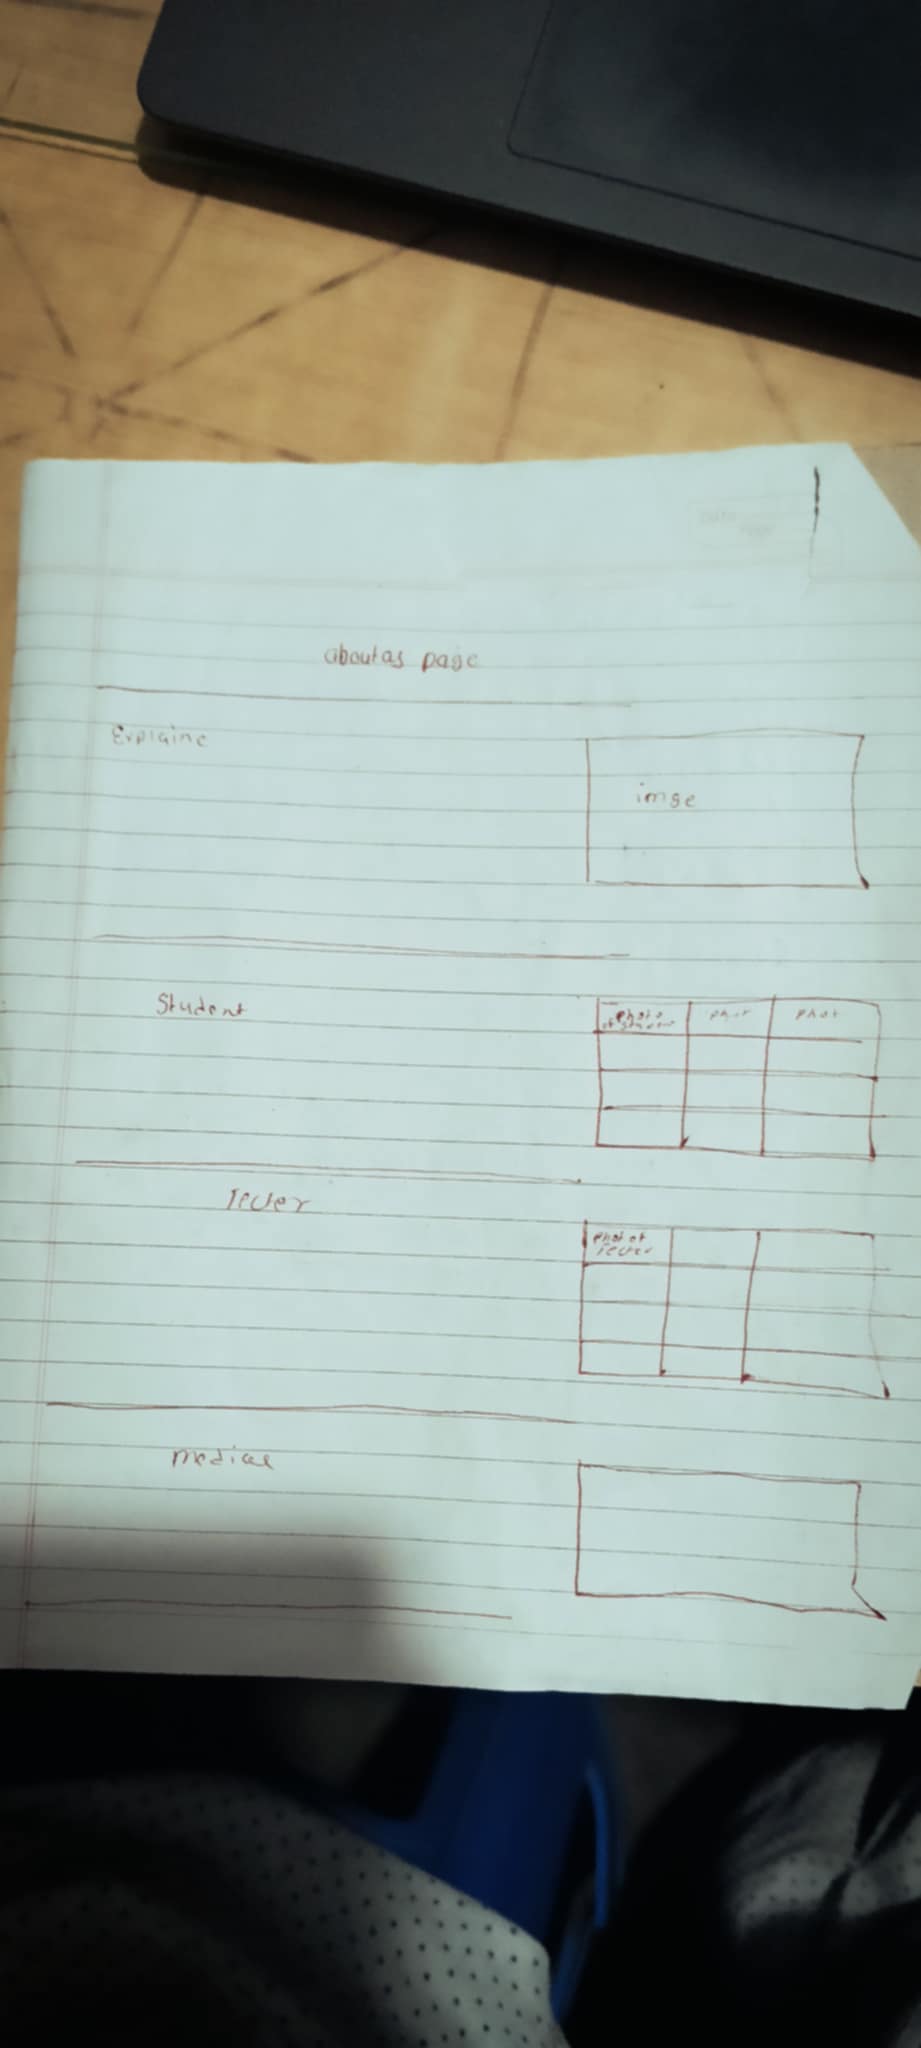 aboutas page
Explaine
imge
Student
photo
of student
phot
phot
Tecter
phot of
Tecter
medical